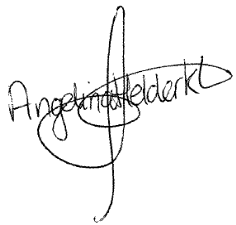 Angelina Helderkl